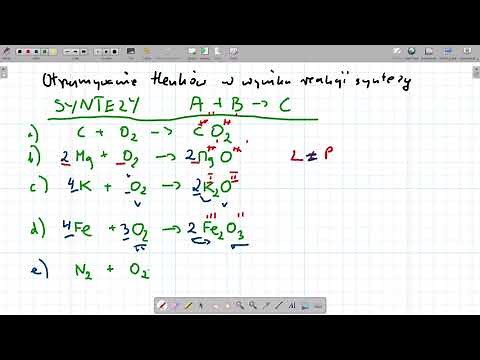 Otrzymywanie tlenków w wyniku reakcji syntezy
SYNTEZY A + B → C
a) C + O₂ → C O₂
b) 2 Mg + O₂ → 2 Mg O L ≠ P
c) 4K + O₂ → 2K₂O
d) 4Fe + 3O₂ → 2 Fe₂O₃
e) N₂ + O₂